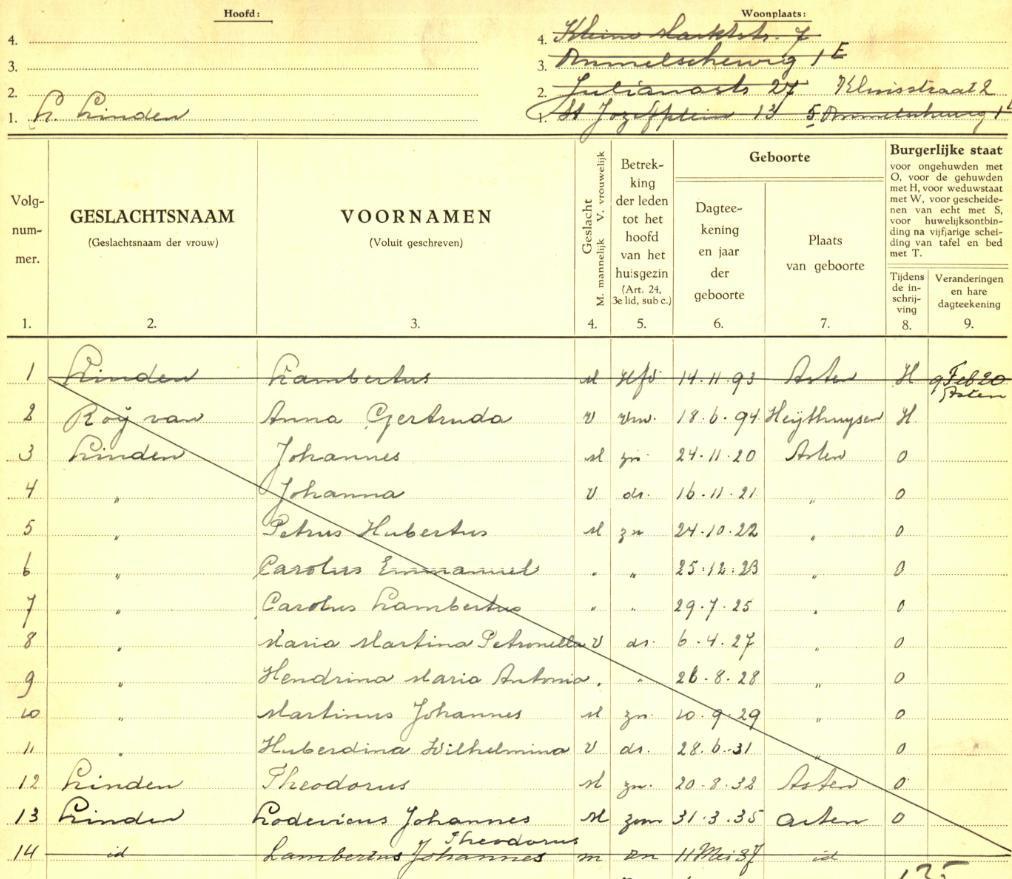 Hoofd:
4.
3.
2.
1. L. Linden
Woonplaats:
4. Kleine Marktstr. 7
3. Ommelscheweg 1E
2. Julianastr 27 Kluisstraat 2
1. St Jozefplein 13 5. Ommelscheweg 1
Volgnummer.
1.
GESLACHTSNAAM
(Geslachtsnaam der vrouw)
2.
VOORNAMEN
(Voluit geschreven)
3.
Geslacht
M. mannelijk V. vrouwelijk
4.
Betrek-
king
der leden
tot het
hoofd
van het
huisgezin
(Art. 24,
3e lid, sub c.)
5.
Geboorte
Dagtee-
kening
en jaar
der
geboorte
6.
Plaats
van geboorte
7.
Burgerlijke staat
voor ongehuwden met
O, voor de gehuwden
met H, voor weduwstaat
met W, voor gescheide-
nen van echt met S,
voor huwelijksontbin-
ding na vijfjarige schei-
ding van tafel en bed
met T.
Tijdens
de in-
schrij-
ving
8.
Veranderingen
en hare
dagteekening
9.
1 Linden Lambertus M Hfd 14.11.93 Asten H 9 Feb 20 Asten
2 Roÿ van Anna Gertruda V vrw. 18.6.94 Heijthuysen H.
3 Linden Johannes M zn 24.11.20 Asten O
4 „ Johanna V dr. 16.11.21 „ O
5 „ Petrus Hubertus M zn 24.10.22 „ O
6 „ Carolus Emmanuel „ „ 25.12.23 „ O
7 „ Carolus Lambertus „ „ 29.7.25 „ O
8 „ Maria Martina Petronella V dr. 6.4.27 „ O
9 „ Hendrina Maria Antonia „ „ 26.8.28 „ O
10 „ Martinus Johannes M zn. 10.9.29 „ O
11 „ Huberdina Wilhelmina V dr. 28.6.31 „ O
12 Linden Theodorus M zn. 20.8.32 Asten O
13 Linden Lodevicus Johannes M zoon 31.3.35 Asten O
Theodorus
14 id Lambertus Johannes m zn 11 Mei 37 id